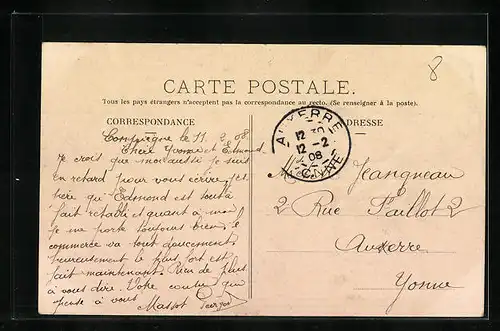 8
CARTE POSTALE.
Tous les pays étrangers n'acceptent pas la correspondance au recto. (Se renseigner à la poste).
CORRESPONDANCE
ADRESSE
AUXERRE
12 30
12 - 2
08
YONNE
Compiègne le 11 2 08
Chère Yvonne et Edmond
Je crois que moi aussi je suis
en retard pour vous écrire, j'es
père qu'Edmond est tout à
fait rétabli et quant à moi
je me porte toujours bien, le
commerce va tout doucement
heureusement le plus fort est
fait maintenant. Rien de plus
à vous dire. Votre cousin qui
pense à vous Massot
M Jeangneau
2 Rue Paillot 2
Auxerre
Yonne